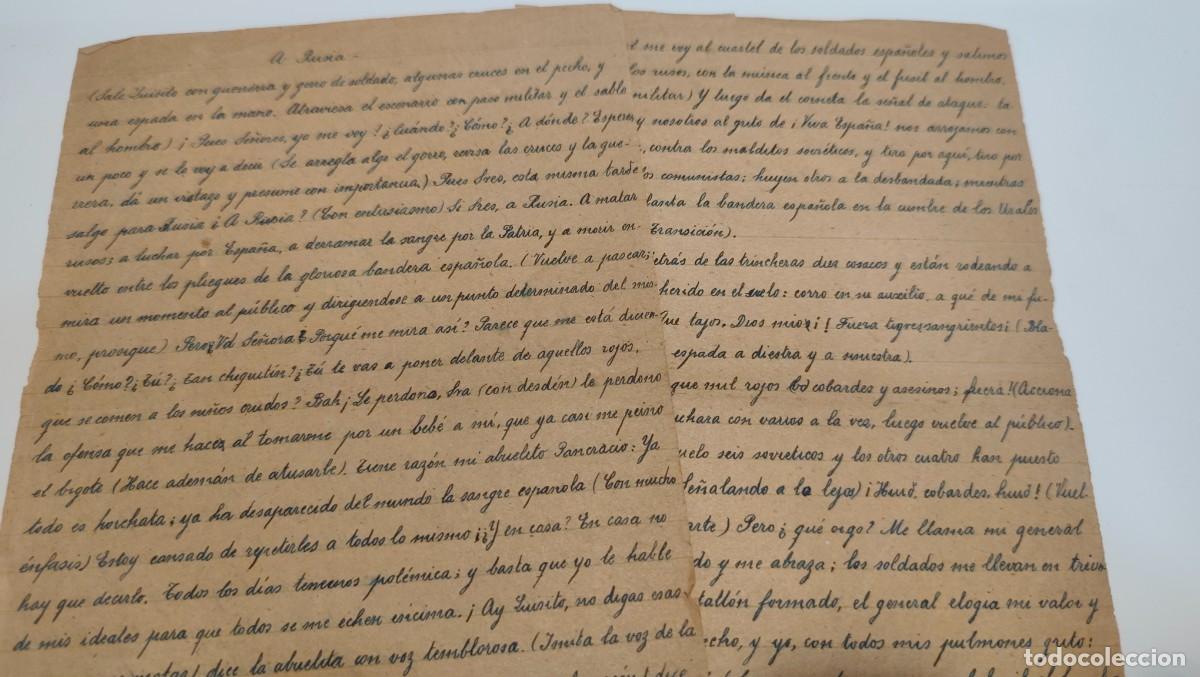 A Rusia -
(Sale Luisito con guerrera y gorro de soldado, algunas cruces en el pecho, y
una espada en la mano. Atraviesa el escenario con paso militar y el sable
al hombro) ¡ Pues Señores, yo me voy! ¿Cuándo? ¿Cómo? ¿ A dónde? Esperen
un poco y se lo voy a decir (Se arregla algo el gorro, revisa las cruces y la gue-
rrera, dá un vistazo y presume con importancia.) Pues Sres, esta misma tarde
salgo para Rusia ¿ A Rusia? (Con entusiasmo) Si Sres, a Rusia. A matar
rusos; a luchar por España, a derramar la sangre por la Patria, y a morir en-
vuelto entre los pliegues de la gloriosa bandera española. (Vuelve a pasear;
mira un momento al público y dirigiendose a un punto determinado del mis-
mo, prosigue) Pero ¿Vd Señora? Porqué me mira así? Parece que me está dicien-
do ¿ Cómo? ¿ Tú? ¿ Tan chiquitín? ¿ Tú te vas a poner delante de aquellos rojos,
que se comen a los niños crudos? Bah ¡ Le perdono, Sra (con desdén) le perdono
la ofensa que me hace al tomarme por un bebé a mí, que ya casi me peino
el bigote (Hace ademán de atusarle). Tiene razón mi abuelito Pancracio: Ya
todo es horchata; ya ha desaparecido del mundo la sangre española (Con mucho
énfasis) Estoy cansado de repetirles a todos lo mismo ¡¿Y en casa? En casa no
hay que decirlo. Todos los días tenemos polémica; y basta que yo le hable
de mis ideales para que todos se me echen encima. ¡ Ay Luisito, no digas esas
dice la abuelita con voz temblorosa. (Imita la voz de la
me voy al cuartel de los soldados españoles y salimos
los rusos, con la música al frente y el fusil al hombro.
militar) Y luego da el corneta la señal de ataque: ta
y nosotros al grito de ¡Viva España! nos arrojamos con
, contra los malditos soviéticos, y tiro por aquí, tiro por
os comunistas; huyen otros a la desbandada; mientras
lanta la bandera española en la cumbre de los Urales
Transición).
etrás de las trincheras diez cosacos y están rodeando a
herido en el suelo: corro en su auxilio, a qué de mi fu-
ue tajos. Dios mío ¡! Fuera tigres sangrientos! (Bla-
espada a diestra y a siniestra).
que mil rojos cobardes y asesinos; fuera! (Acciona
uchara con varios a la vez, luego vuelve al público).
uelo seis sovieticos y los otros cuatro han puesto
señalando a lo lejos) ¡Huid, cobardes, huid! (Vuel-
arte) Pero ¿ qué oigo? Me llama mi general
do y me abraza; los soldados me llevan en triun-
tallón formado, el general elogia mi valor y
echo, y yo, con todos mis pulmones grito:
todocoleccion